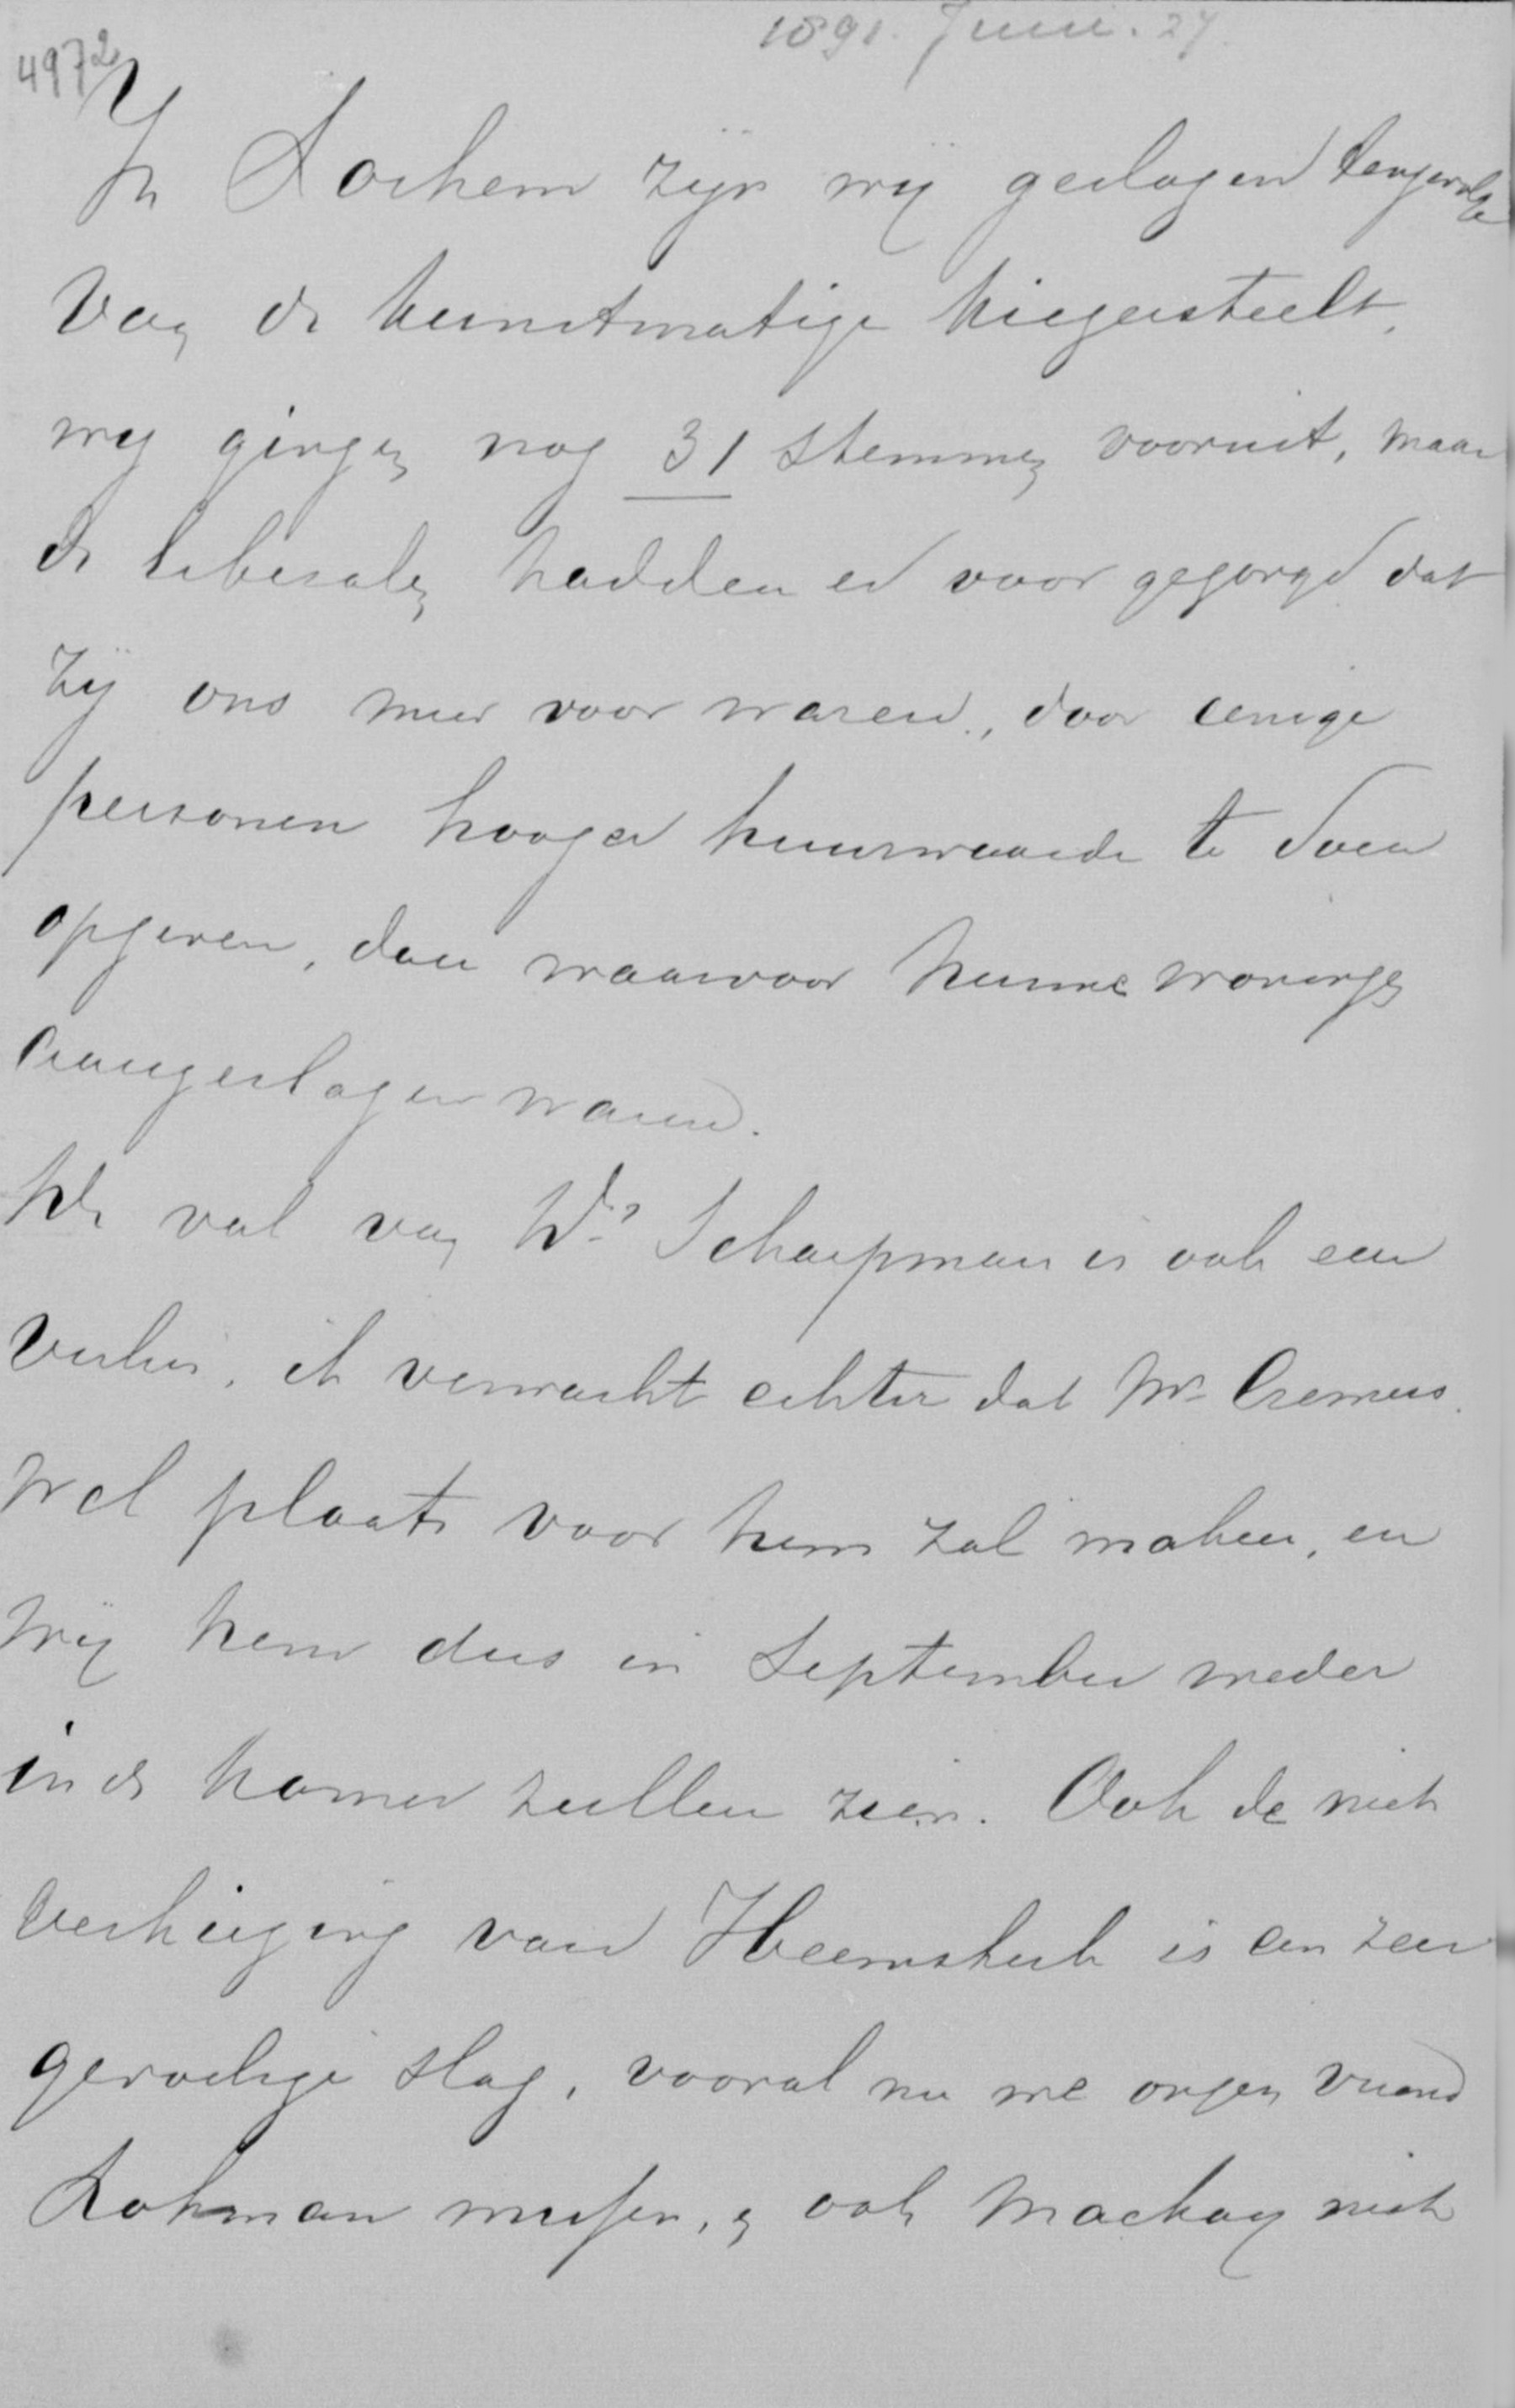 1891. Juni. 27
4972
In Lochem zijn wij geslagen tengevolge
van de kunstmatige kiezersteelt,
wij gingen nog 31 stemmen vooruit, maar
de liberalen hadden er voor gezorgd dat
zij ons meer voor waren, door eenige
personen hooger huurwaarde te doen
opgeven, dan waarvoor hunne woningen
aangeslagen waren.
De val van Dr Schaepman is ook een
verlies, ik verwacht echter dat Mr Cremers
wel plaats voor hem zal maken, en
wij hem dus in September weder
in de kamer zullen zien. Ook de niet
verkiezing van Heemskerk is een zeer
gevoelige slag, vooral nu we onzen vriend
Lohman missen, en ook Mackay niet